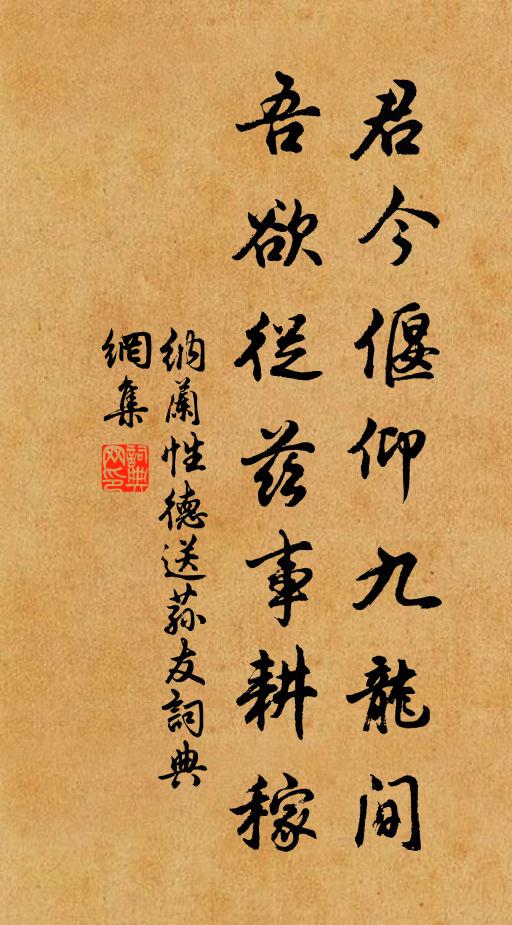 君今偃仰九龍间
吾欲從兹事耕稼
纳蘭性德送荪友詞典
網集
詞典網印